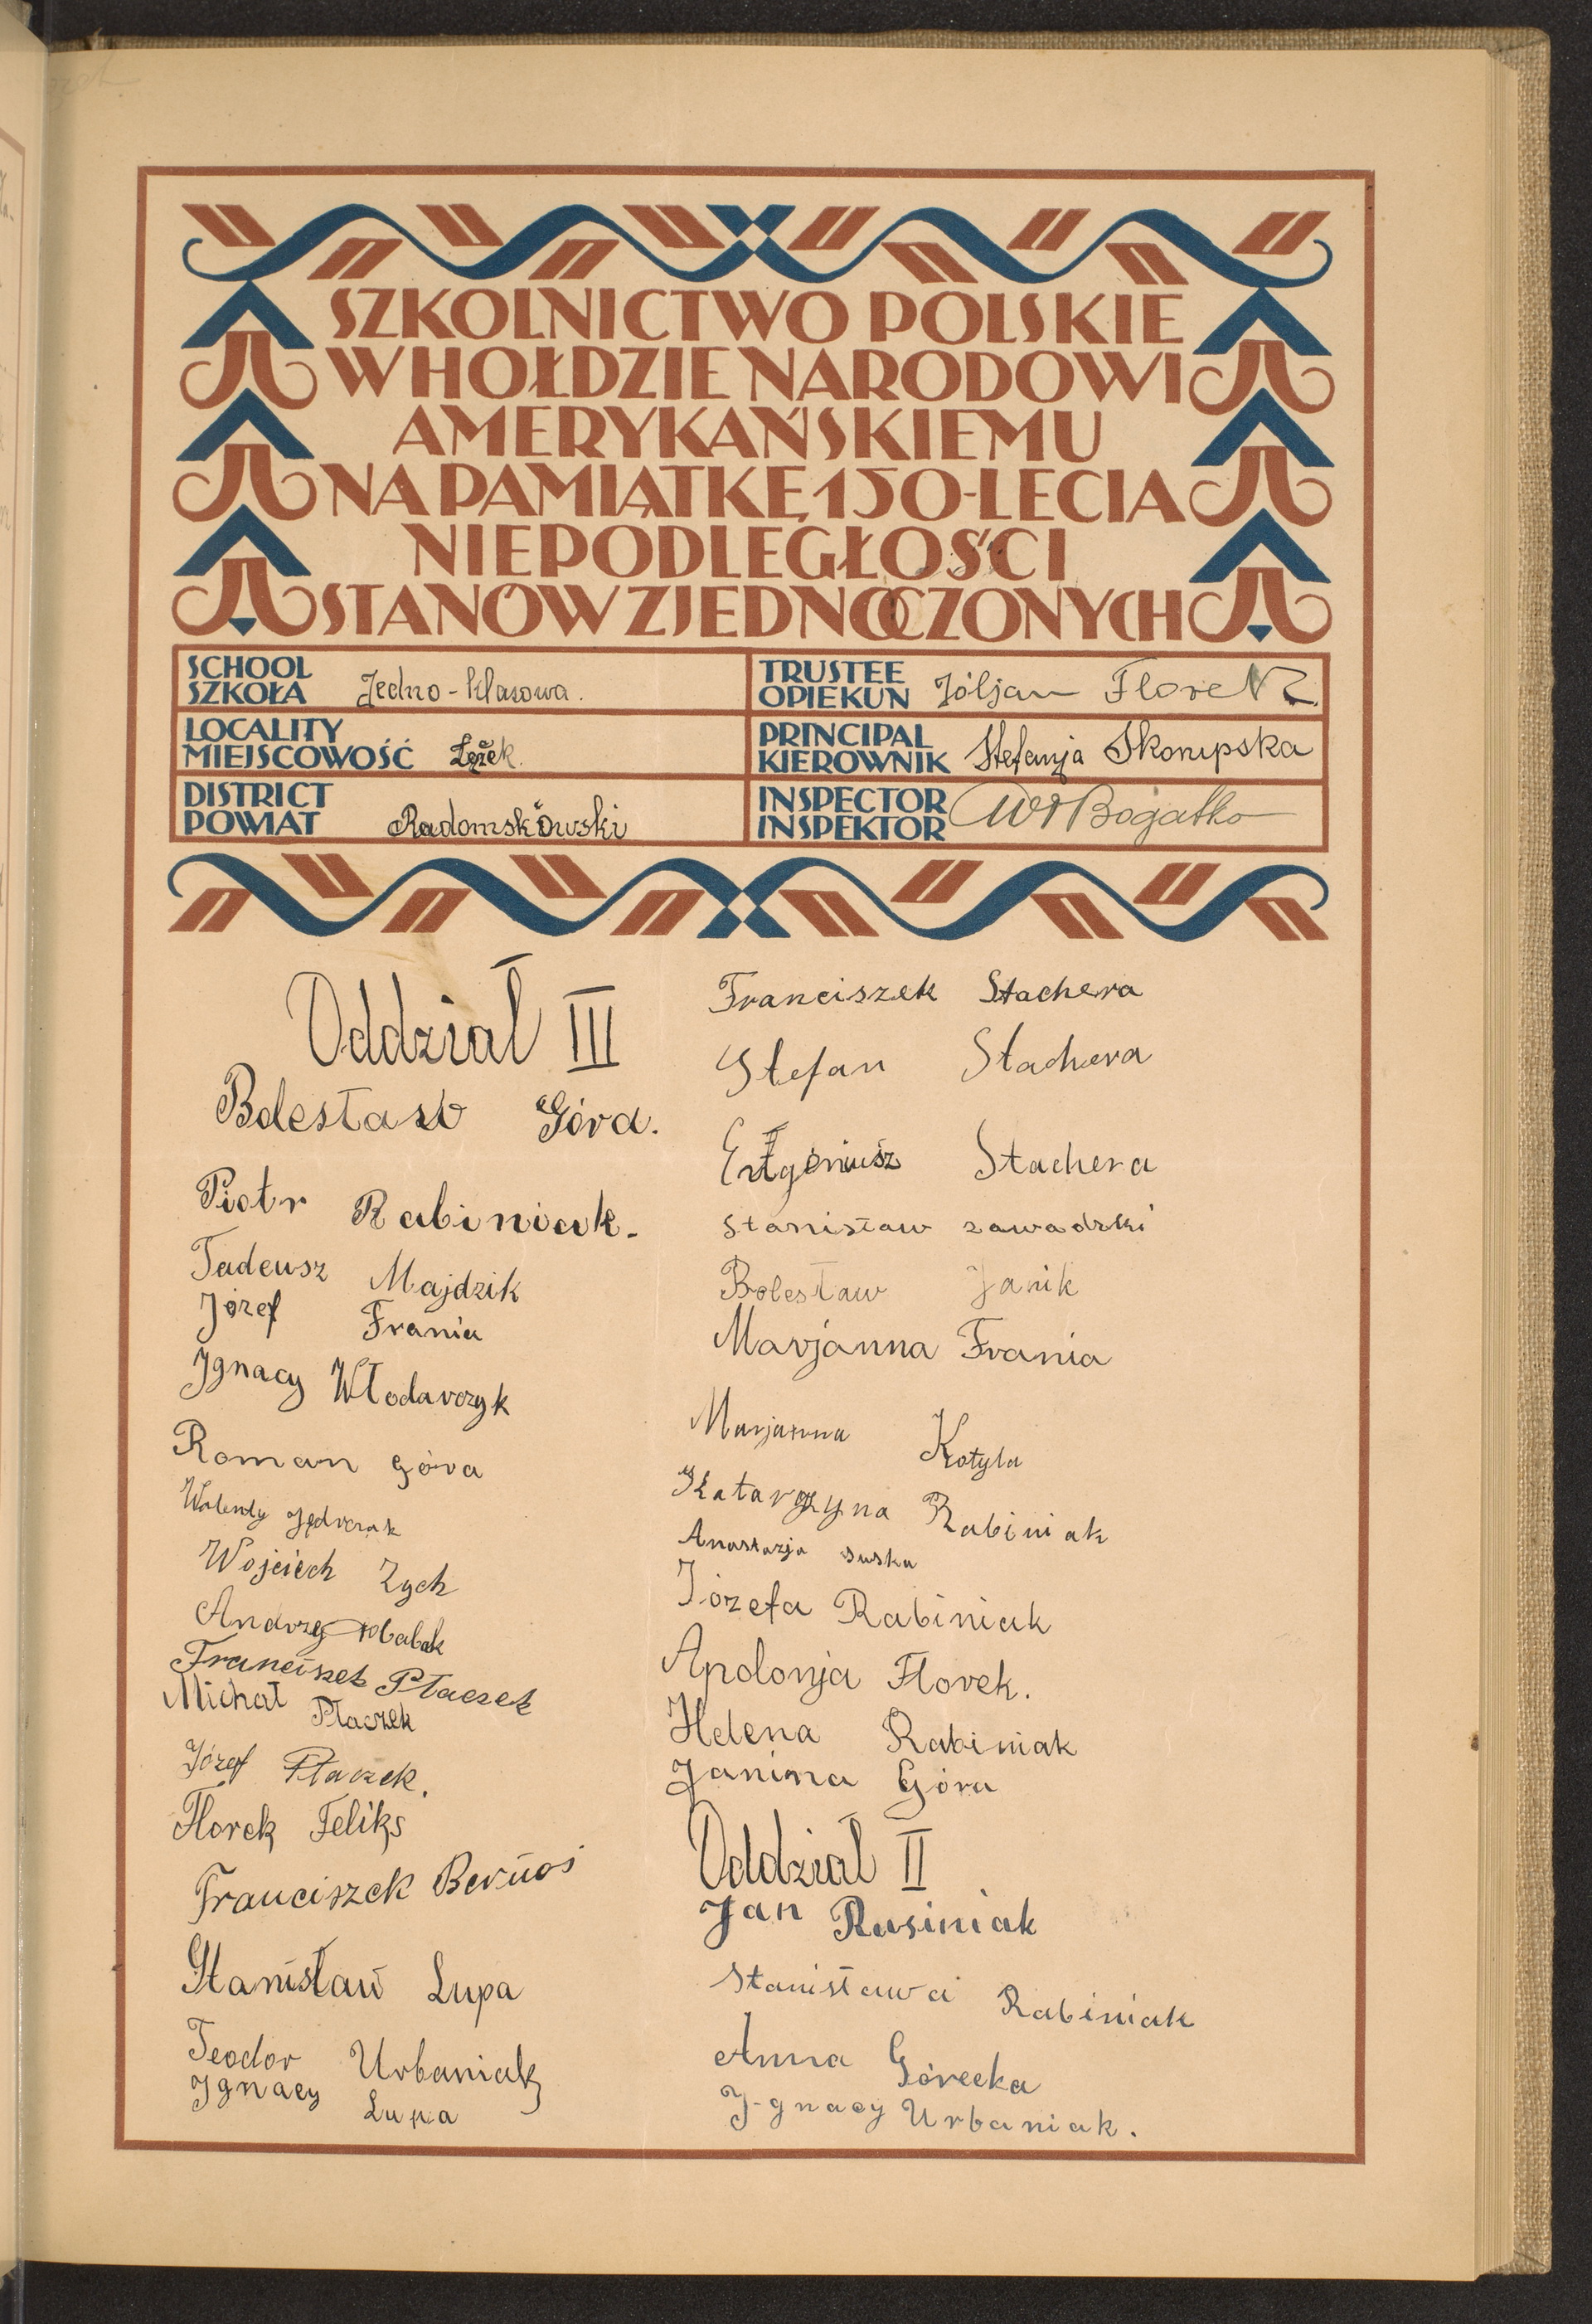 SZKOLNICTWO POLSKIE
W HOŁDZIE NARODOWI
AMERYKAŃSKIEMU
NA PAMIĄTKĘ 150-LECIA
NIEPODLEGŁOŚCI
STANÓW ZJEDNOCZONYCH
SCHOOL
SZKOŁA Jedno-klasowa.
LOCALITY
MIEJSCOWOŚĆ Łążek.
DISTRICT
POWIAT Radomskowski
TRUSTEE
OPIEKUN Jóljan Florek
PRINCIPAL
KIEROWNIK Stefanja Skorupska
INSPECTOR
INSPEKTOR Wł Bogatko
Oddział III
Bolesław Góra.
Piotr Rabiniak.
Tadeusz Majdzik
Józef Frania
Ignacy Włodarczyk
Roman Góra
Walenty Jędrczak
Wojciech Zych
Andrzej
Franciszek Płaczek
Michał Płaczek
Józef Płaczek.
Florek Feliks
Franciszek Bernos
Stanisław Lupa
Teodor Urbaniak
Ignacy Lupa
Franciszek Stachera
Stefan Stachera
Eugeniusz Stachera
Stanisław zawadzki
Bolesław Janik
Marjanna Frania
Marjanna Kotyla
Katarzyna Rabiniak
Anastazja Suska
Józefa Rabiniak
Apolonja Florek.
Helena Rabiniak
Janina Góra
Oddział II
Jan Rusiniak
Stanisława Rabiniak
Anna Górecka
Ignacy Urbaniak.